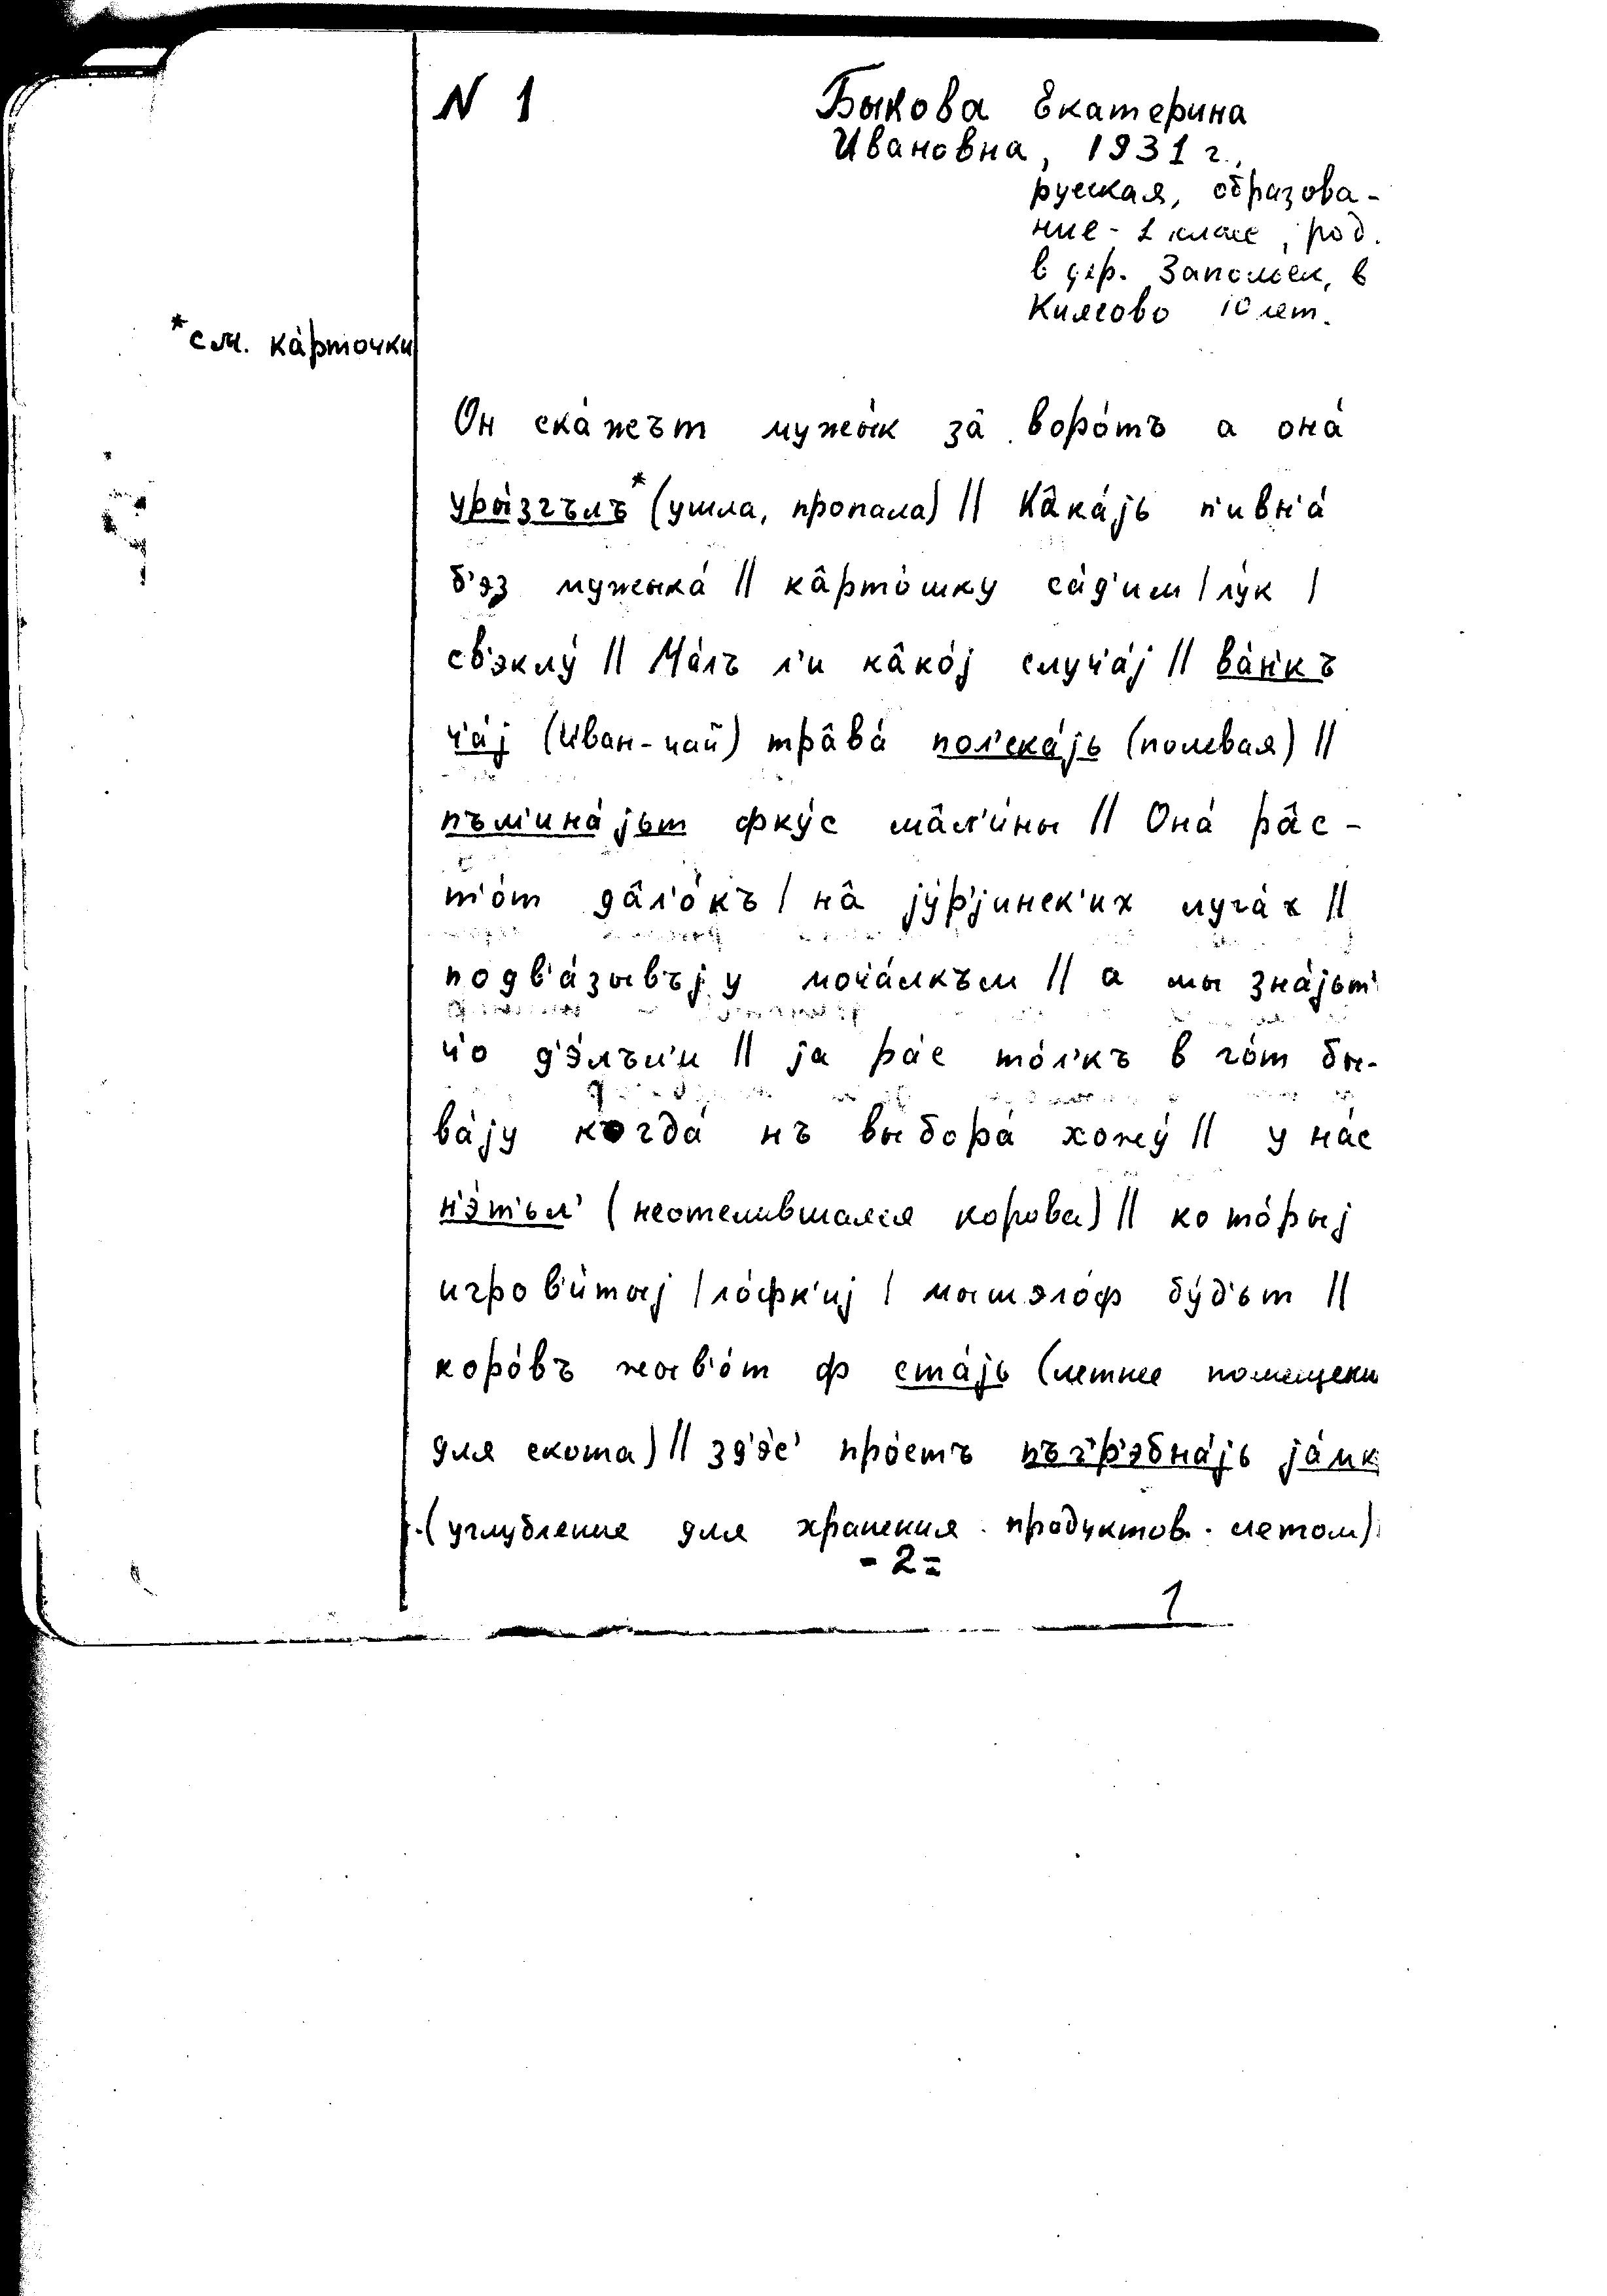 N 1
Быкова Екатерина
Ивановна, 1931 г.,
русская, образова-
ние - 1 класс, род.
в дер. Заполсек, в
Килгово 10 лет.
*см. ка́рточки
Он ска́жът мужы́к за̂ воро́тъ а она́
уры́згълъ* (ушла, пропала) || Ка̂ка́јь п'ивн'а́
б'эз мужыка́ || ка̂рто́шку са́д'им | лу́к |
св'эклу́ || Ма́лъ л'и ка̂ко́ј случ'а́ј || ва́н'къ
ч'а́ј (Иван-чай) тра̂ва́ пол'ска́јь (полевая) ||
пъм'ина́јьт фку́с ма̂л'и́ны || Она́ ра̂с-
т'о́т да̂л'о́къ | на̂ јур'јинск'их луга́х ||
подв'а́зывъју моча́лкъм || а мы зна́јьт'
ч'о д'э́лъл'и || ја ра́с то́л'къ в го́т бы-
ва́ју когда́ нъ выбора́ хожу́ || у на́с
н'э́т'ьл' (неотелившаяся корова) || кото́рыј
игров'и́тыј | ло́фк'иј | мышэло́ф бу́д'ьт ||
коро́въ жыв'о́т ф ста́јь (летнее помещени
для скота) || зд'э́с' про́стъ пъгр'эбна́јь ја́мк
(углубление для хранения продуктов летом)
-2-
1